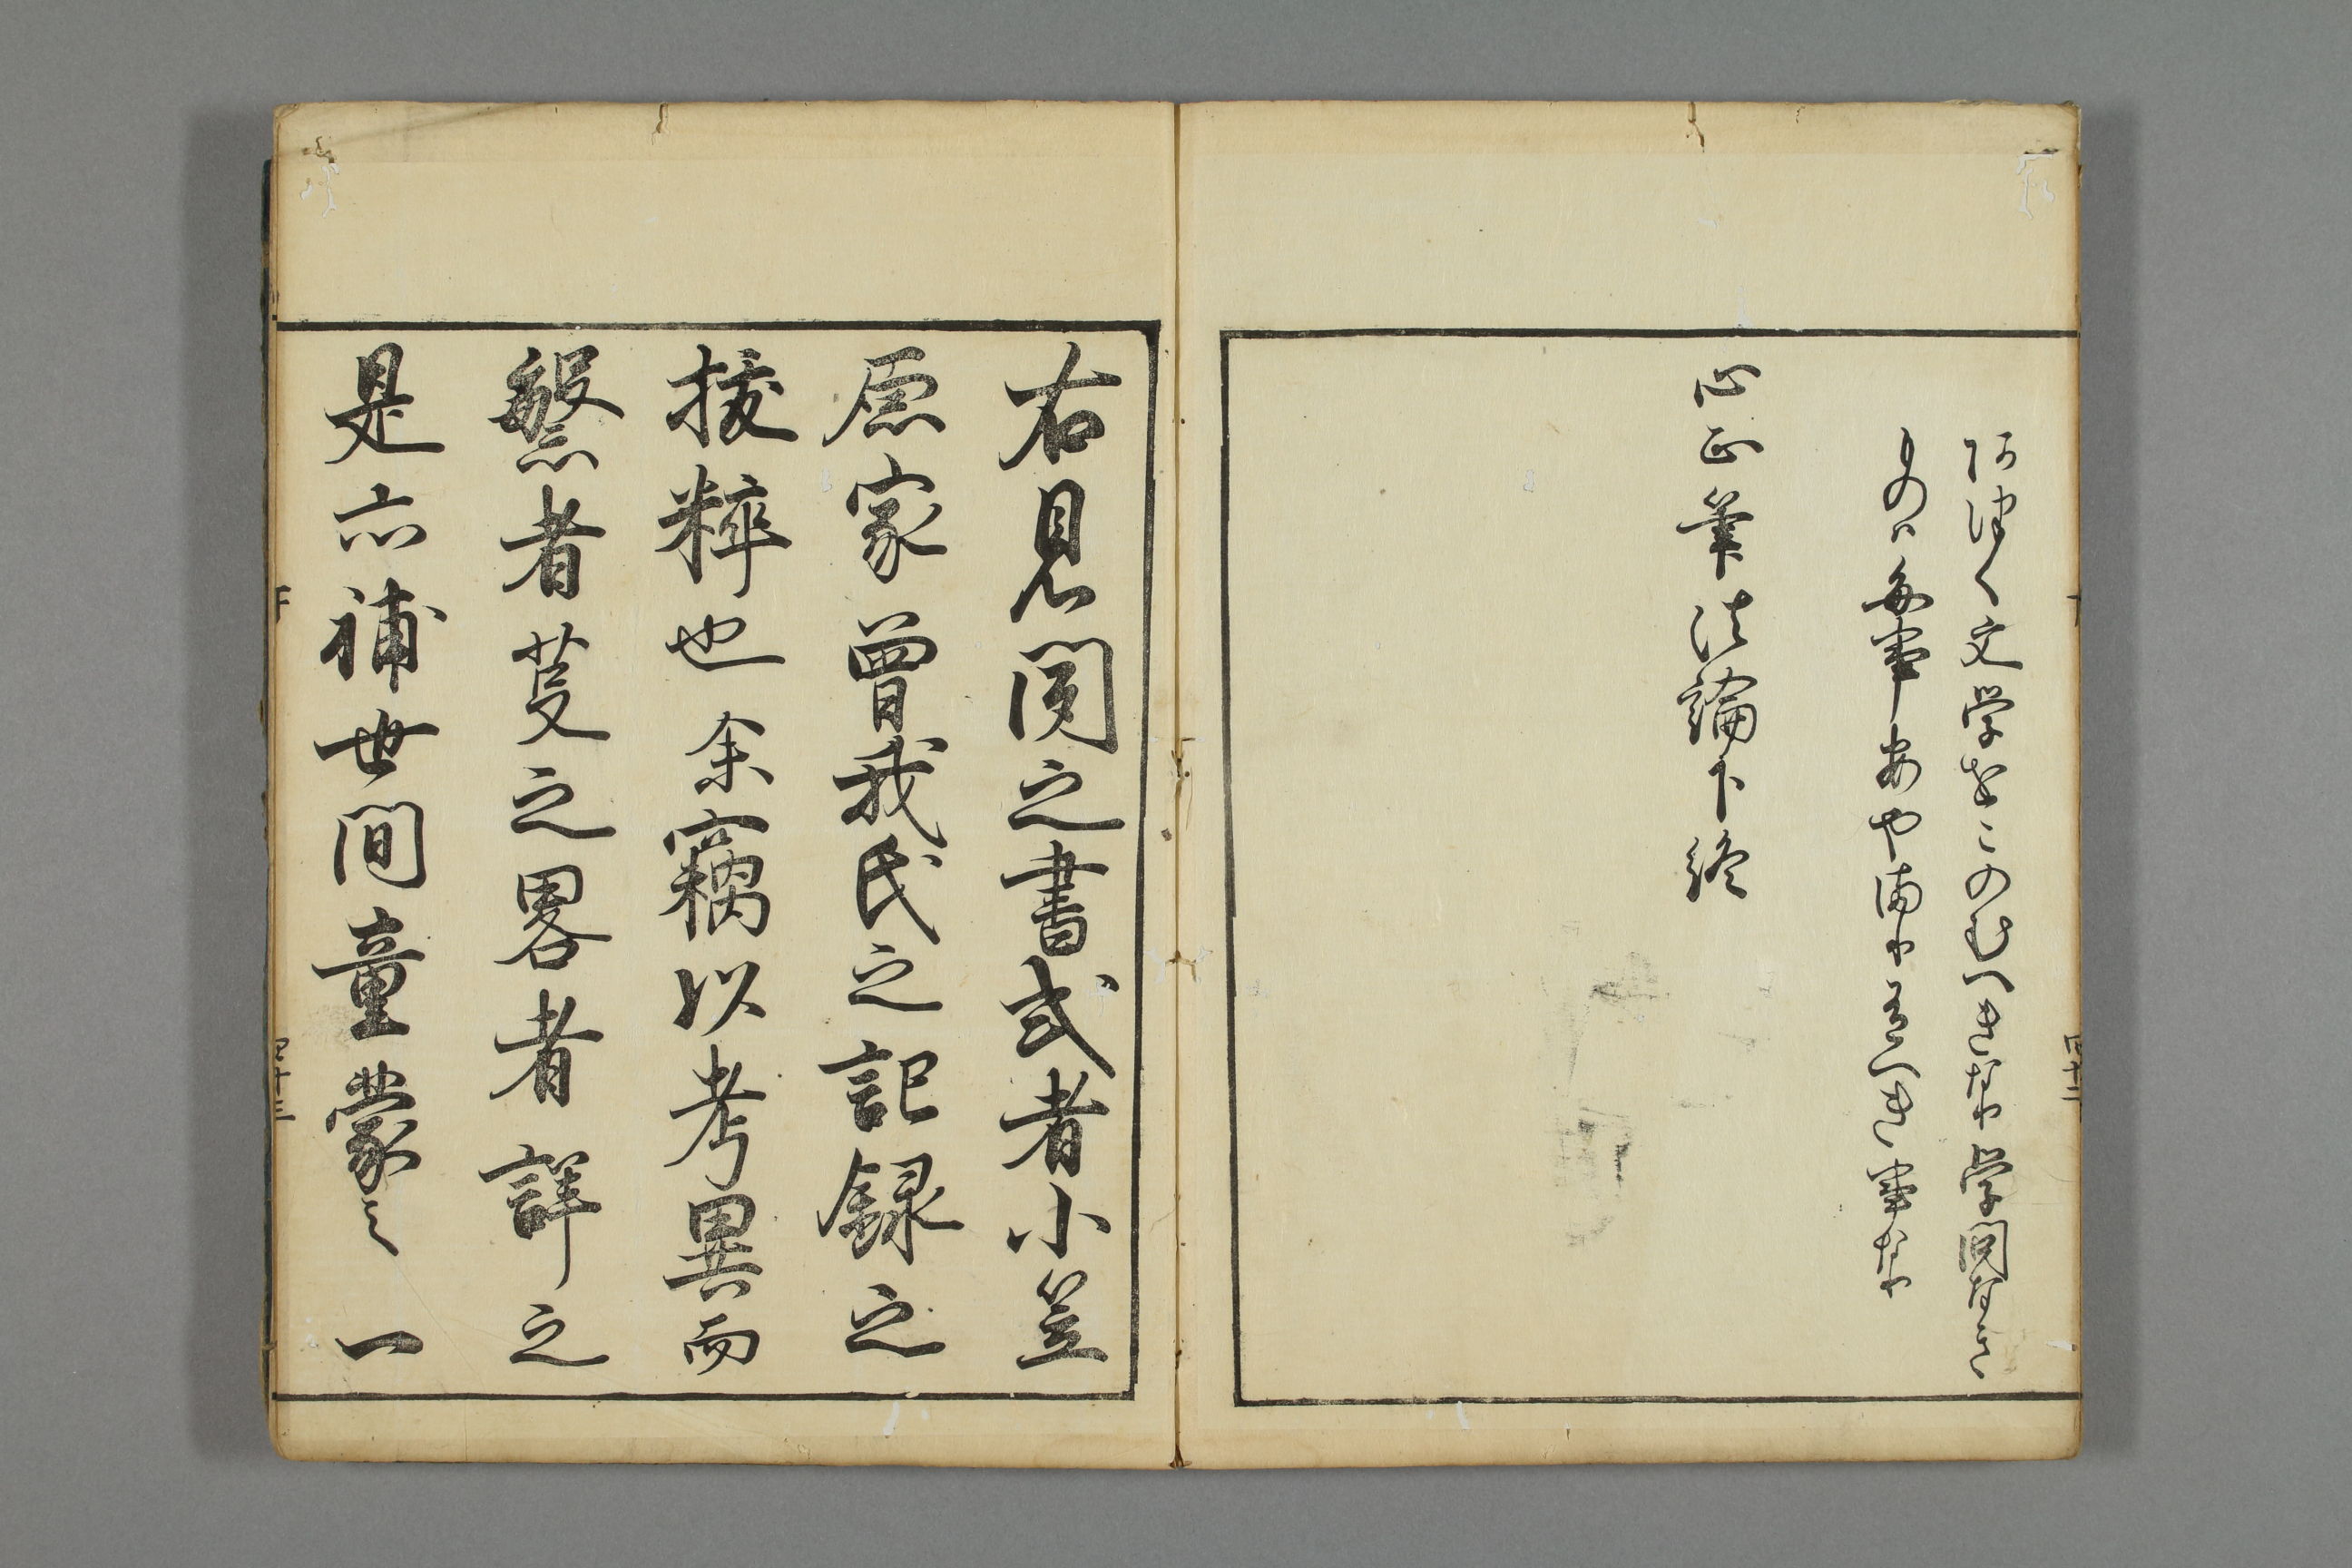 あつく文学をこのむへきなり学問なき
ものハ毎事あやまり有へき事なり
心正筆法論下終
四十二
右見聞之書式者小笠
原家曽我氏之記録之
抜粹也余竊以考異而
繁者芟之畧者詳之
是亦補世間童蒙之一
下
四十三